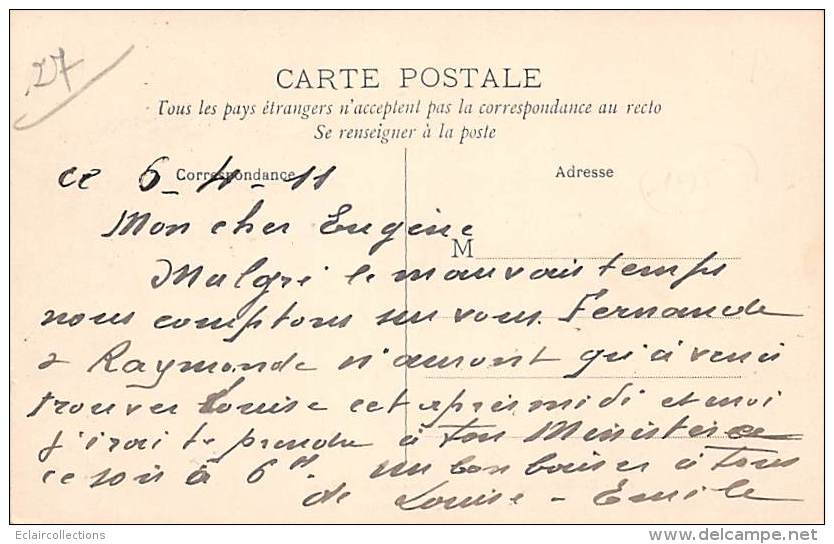 27
CARTE POSTALE
Tous les pays étrangers n'acceptent pas la correspondance au recto
Se renseigner à la poste
Correspondance
Adresse
ce 6-4-11
Mon cher Eugène
M
Malgré le mauvais temps
nous comptons sur vous. Fernande
& Raymonde n'auront qu'à venir
trouver Louise cet après midi et moi
j'irai te prendre à ton Ministère
ce soir à 6H - un bon baiser à tous
de Louise - Emile
Eclaircollections
delcampe.net